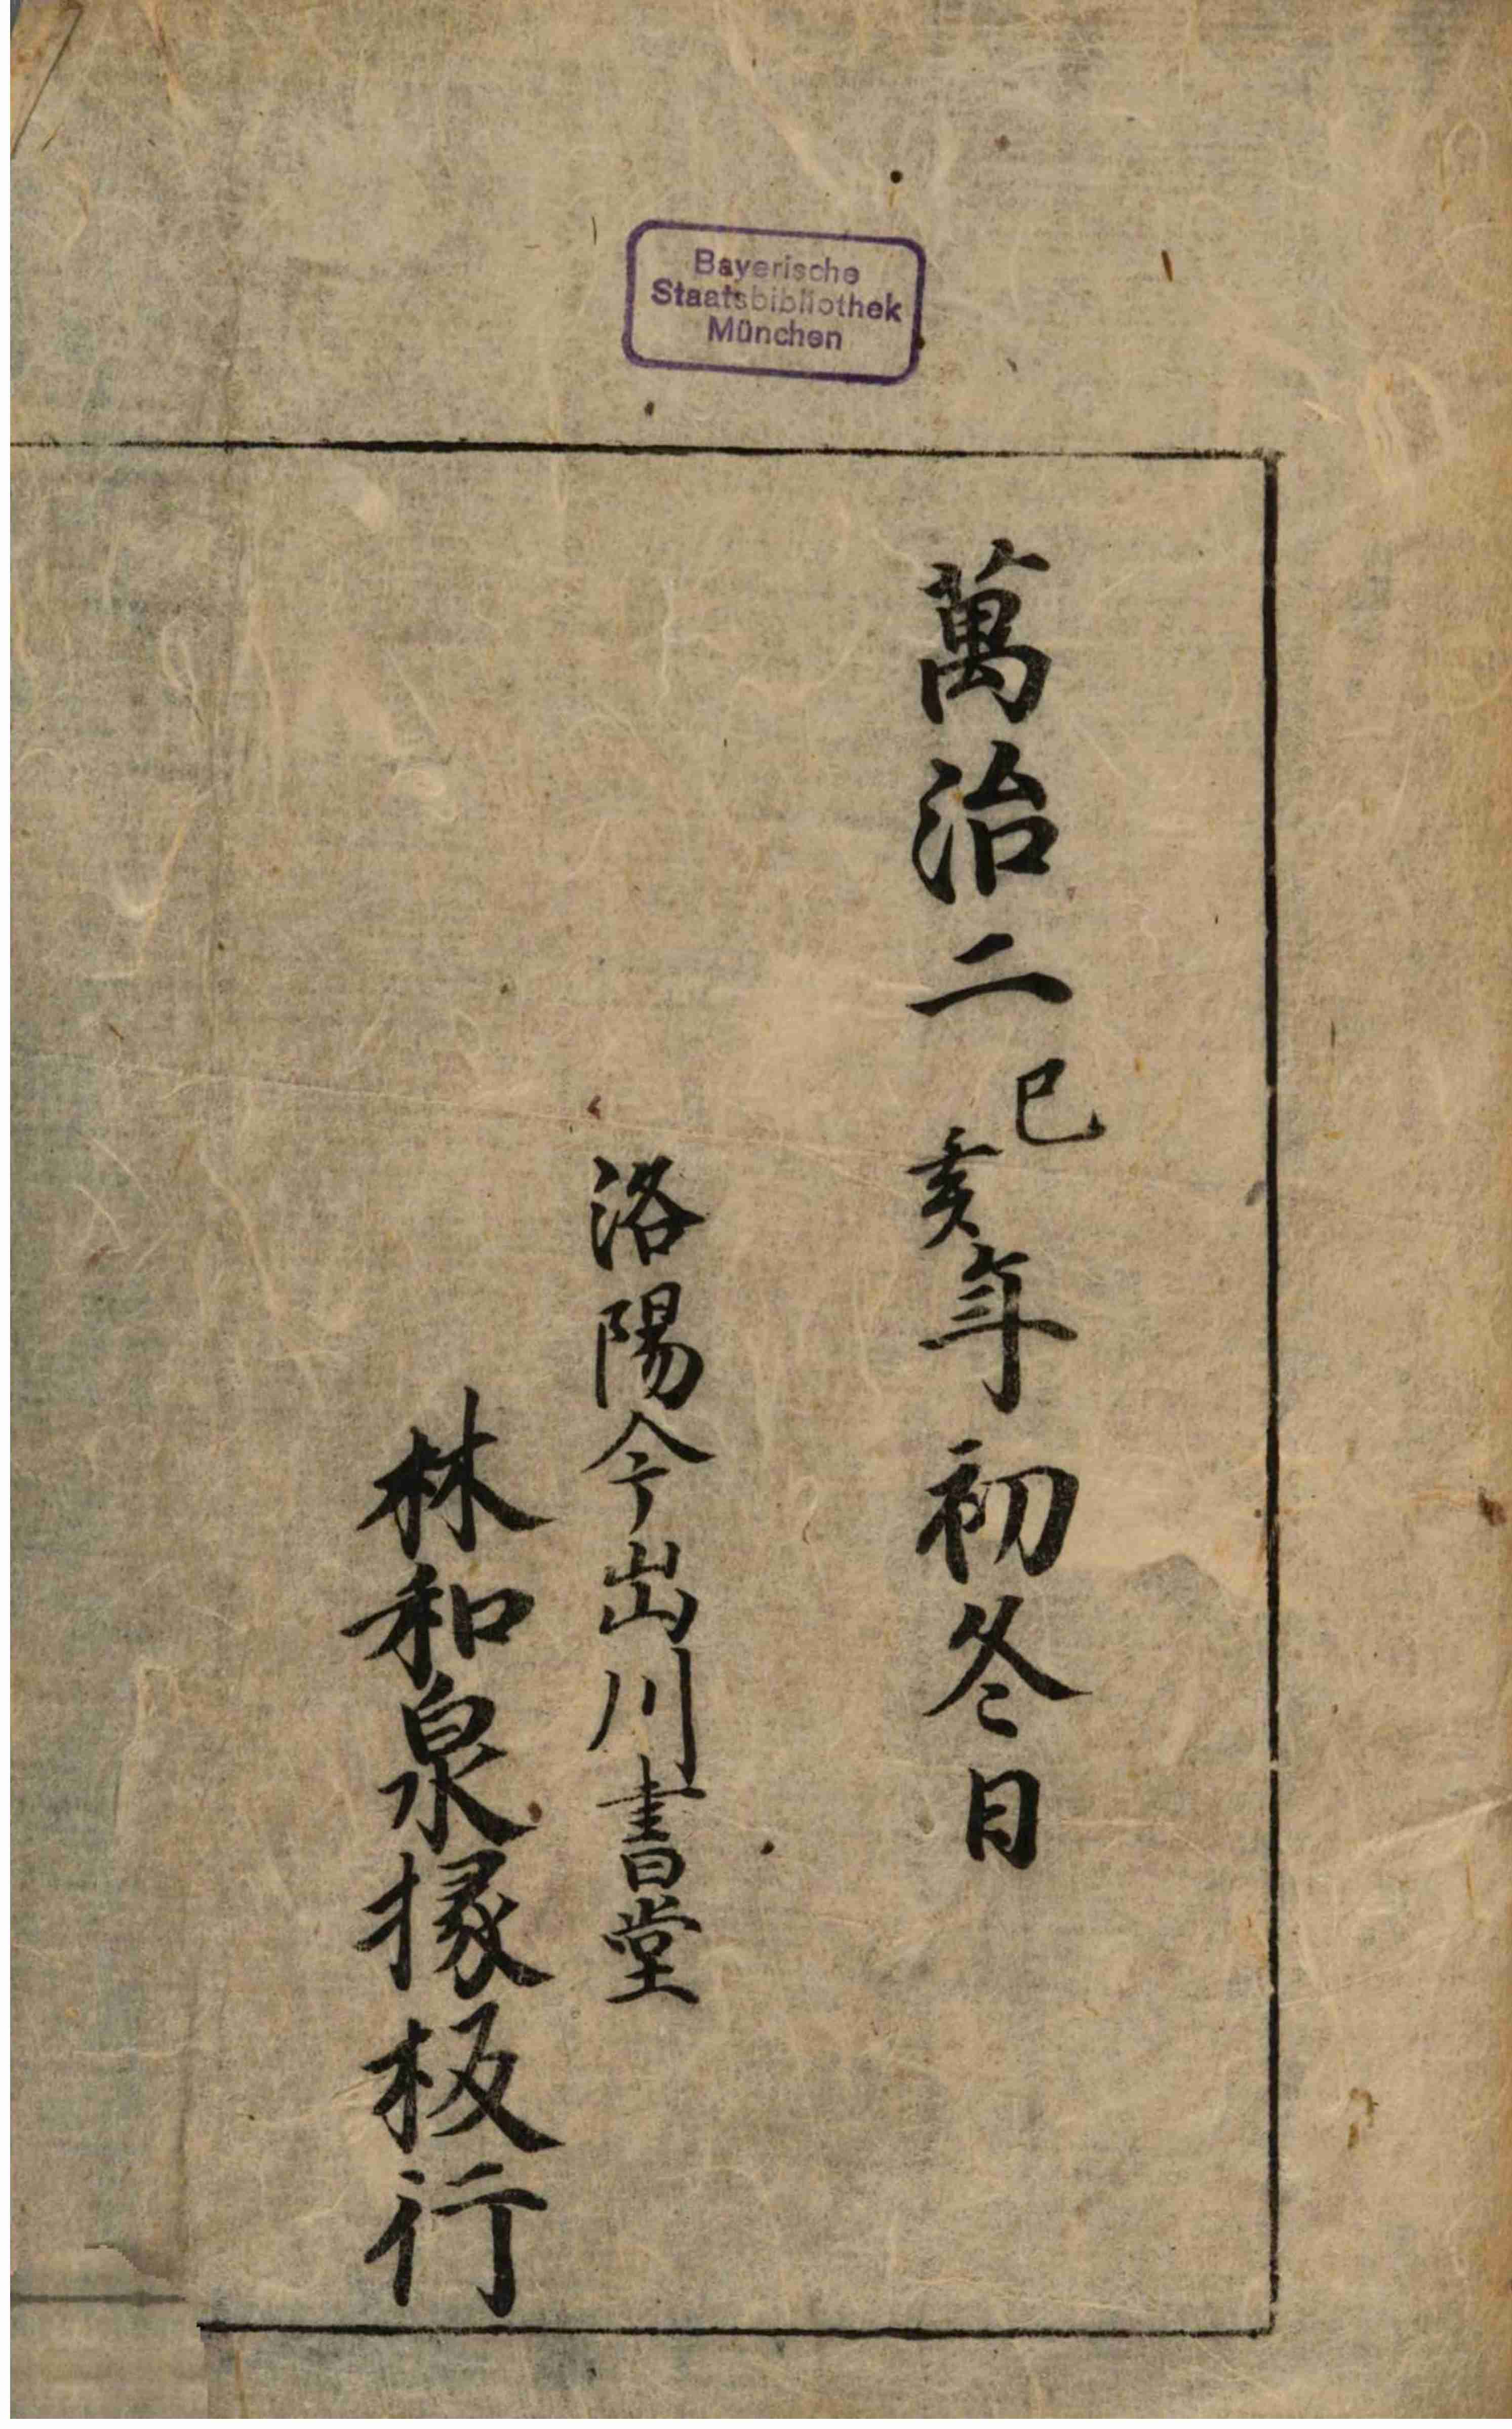 Bayerische
Staatsbibliothek
München
萬治二己亥年初冬日
洛陽今出川書堂
林和泉掾板行